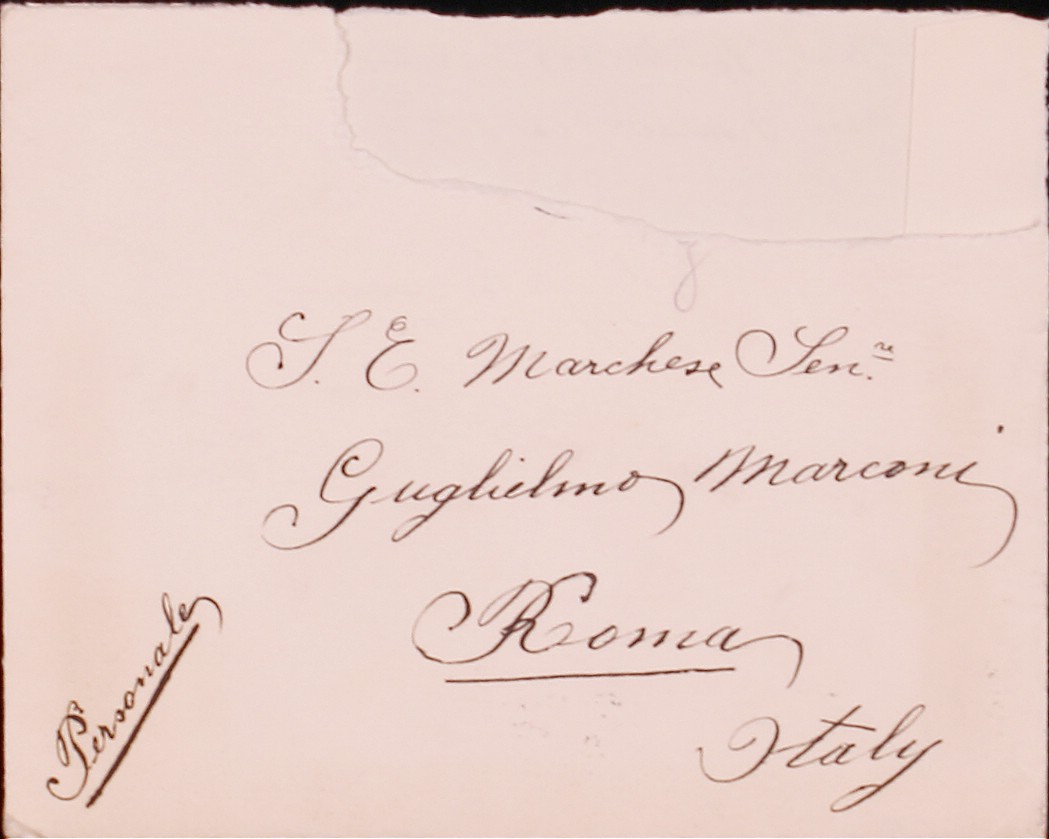 S. E. Marchese Sen.re
Guglielmo Marconi
Roma
Italy
Personale